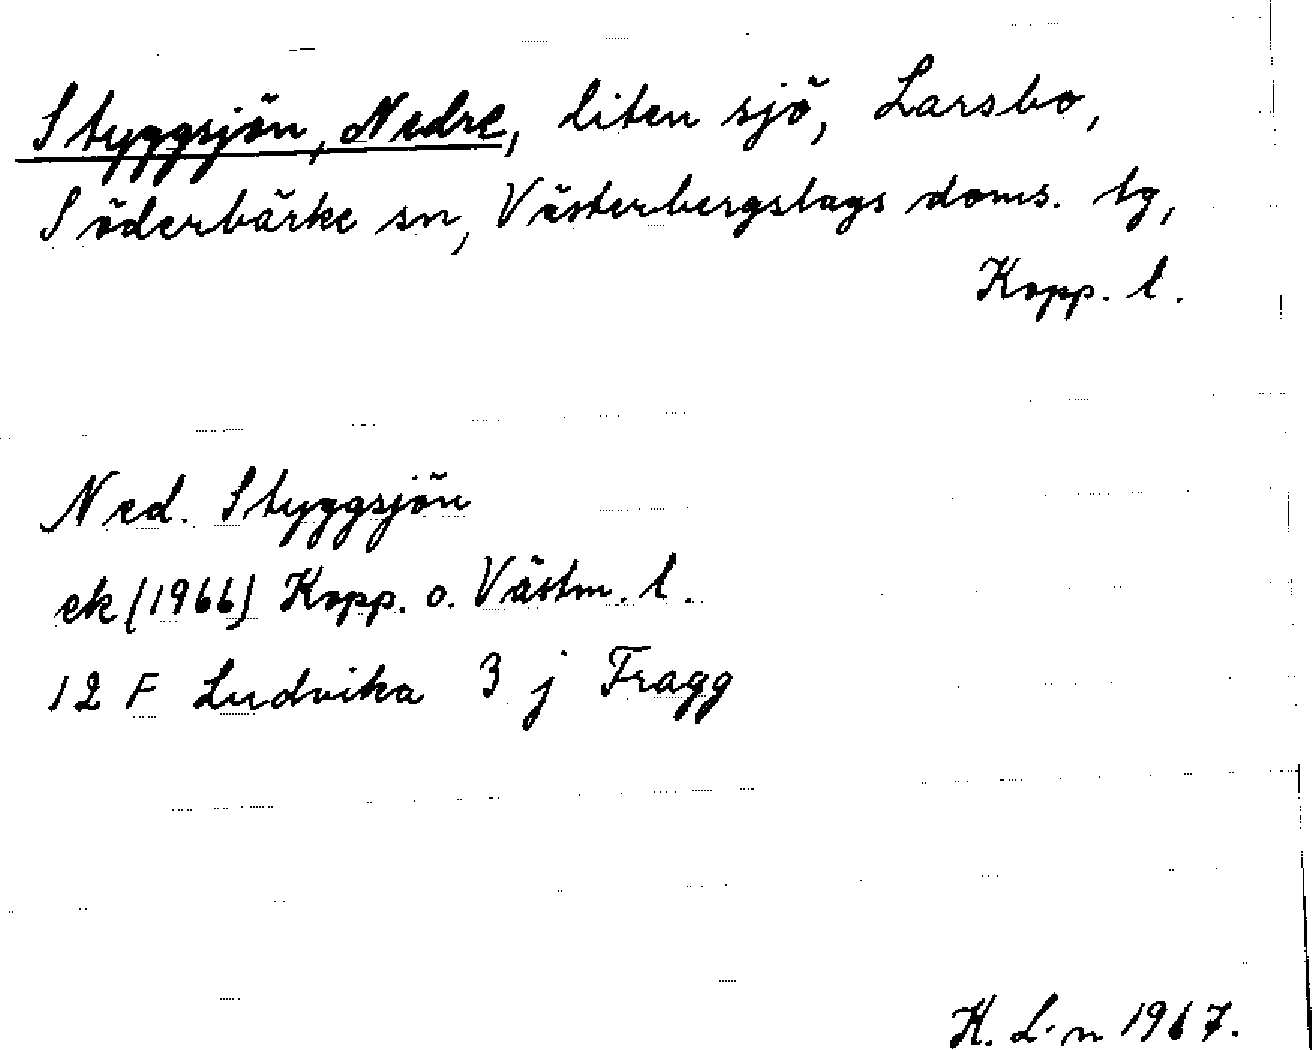 Styggsjön, Nedre, liten sjö, Larsbo,
Söderbärke sn, Västerbergslags doms. tg,
Kopp. l.
Ned. Styggsjön
ek (1966) Kopp. o. Västm. l.
12 F Ludvika 3 j Fragg
H. L-n 1967.